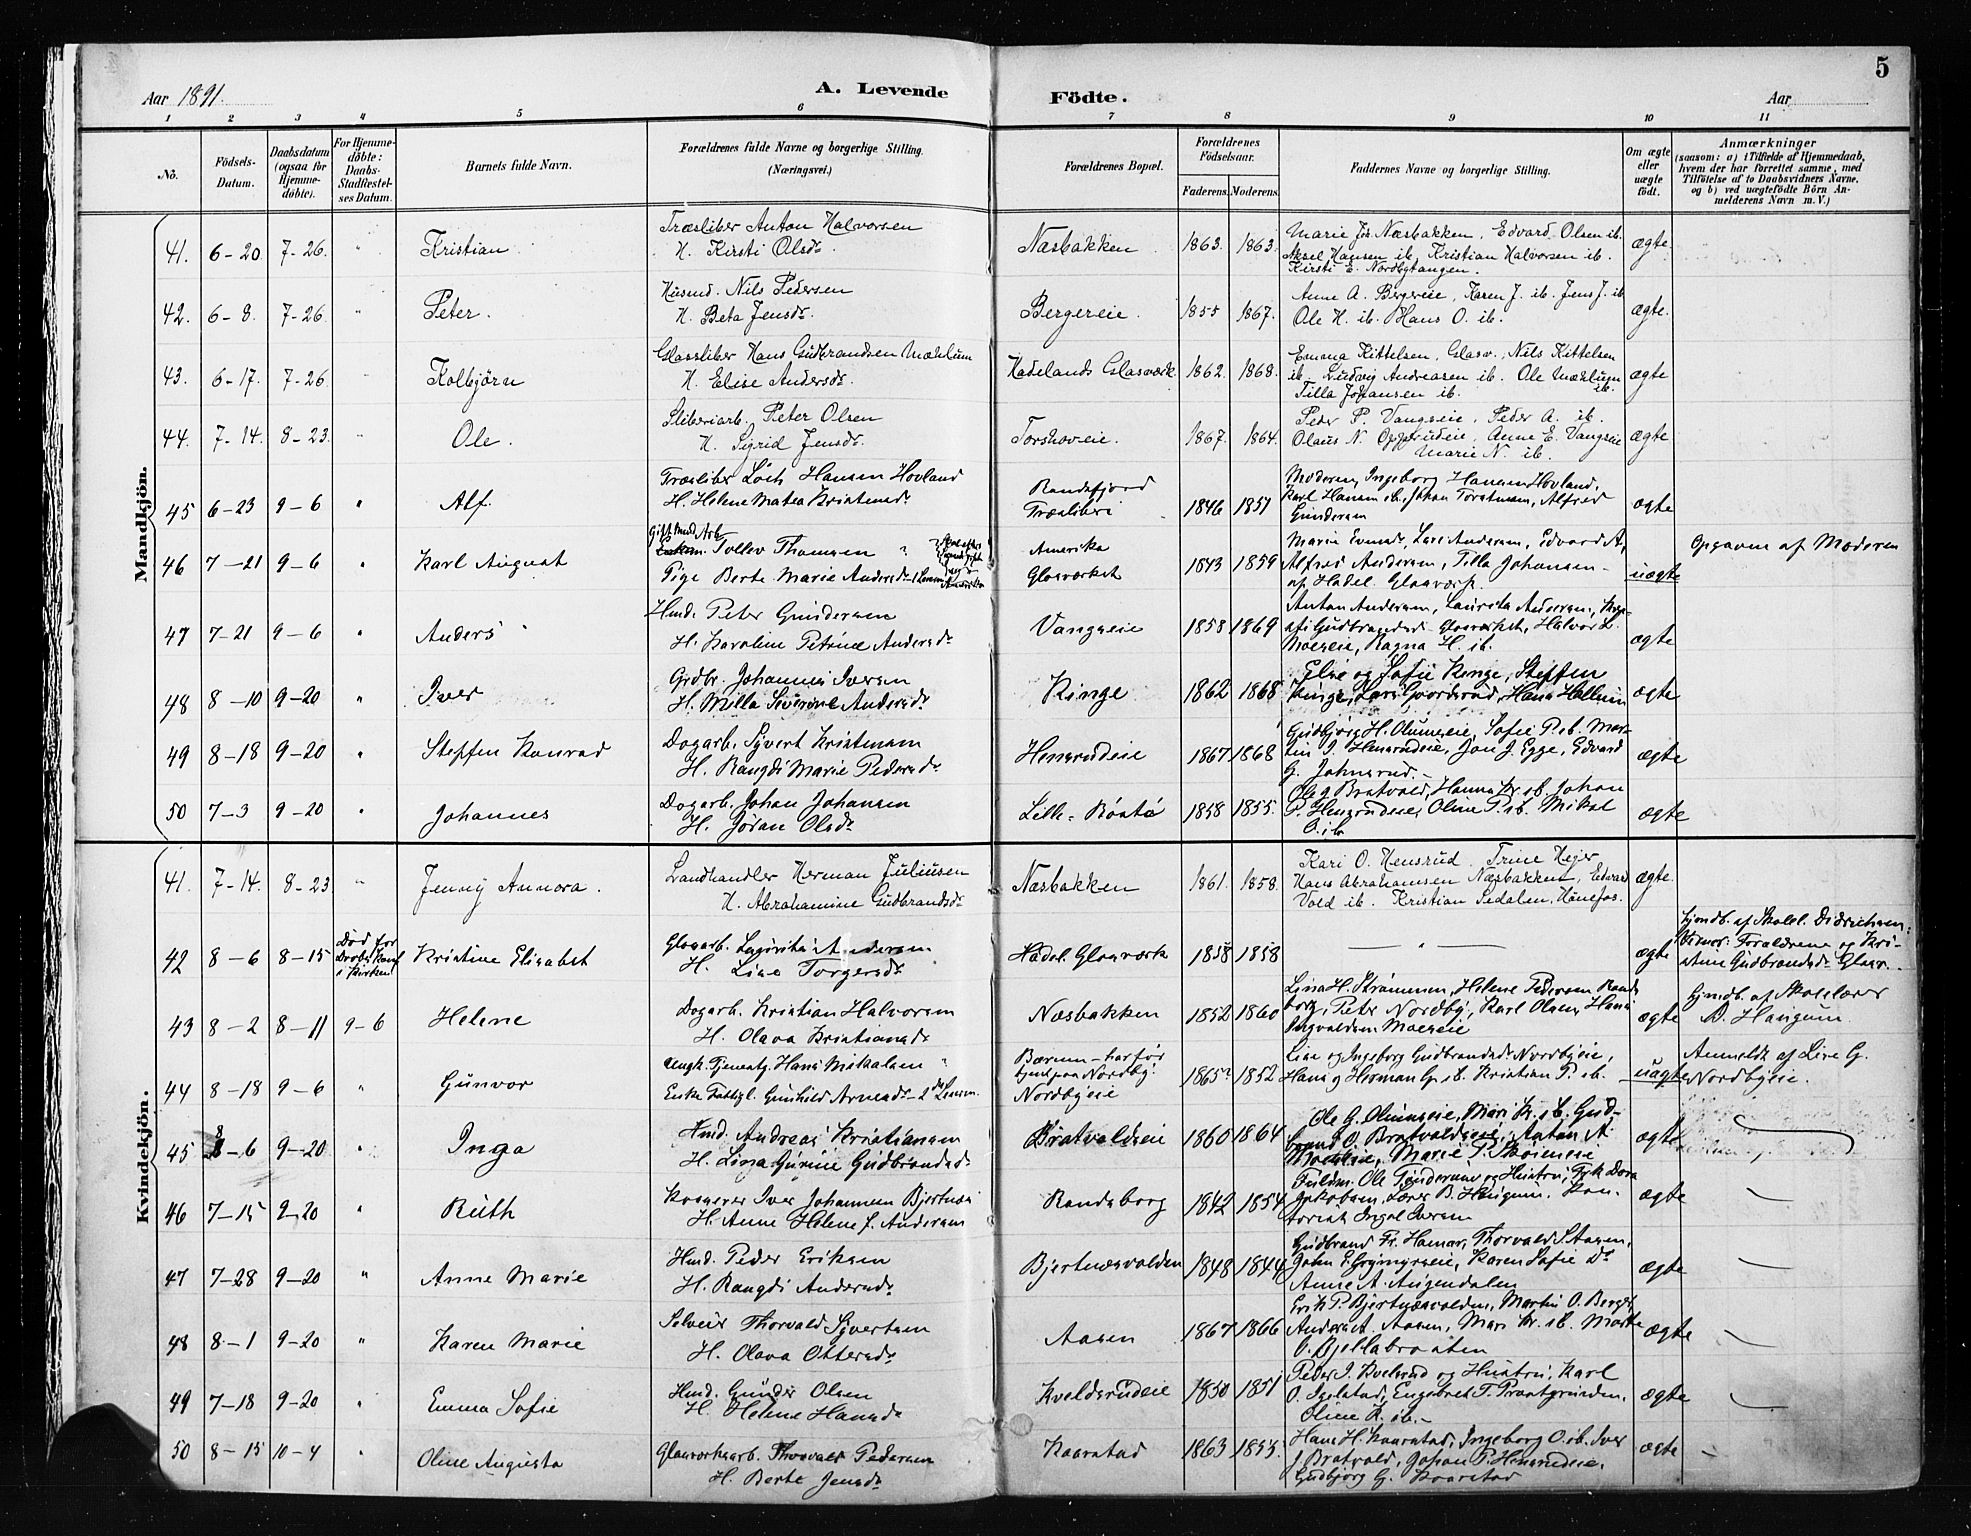 5
Aar 1891.
A. Levende
Födte.
Aar
1 2 3 4 5 6 7 8 9 10 11
No.
Födsels-
Datum.
Daabsdatum
(ogsaa for
Hjemme-
döbte).
For Hjemme-
döbte:
Daabs-
Stadfæstel-
ses Datum.
Barnets fulde Navn.
Forældrenes fulde Navne og borgerlige Stilling.
(Næringsvei.)
Forældrenes Bopæl.
Forældrenes
Födselsaar.
Faderens. Moderens.
Faddernes Navne og borgerlige Stilling.
Om ægte
eller
uægte
födt.
Anmærkninger
(saasom: a) i Tilfælde af Hjemmedaab,
hvem der har forrettet samme, med
Tilföielse af to Daabsvidners Navne,
og b) ved uægtefödte Börn An-
melderens Navn m. V.)
Mandkjön.
41. 6-20. 7-26. " Kristian
Træsliber Anton Halvorsen
H. Kirsti Olsdr
Næsbakken 1863. 1863.
Marie Næsbakken, Edvard Olsen ib.
Aksel Hansen ib. Kristian Halvorsen ib.
Kirsti E. Nordbytangen.
ægte
42. 6-8. 7-26. " Peter.
Husmd. Nils Pedersen
H. Beta Jensdr.
Bergereie. 1855 1867.
Anne A. Bergereie, Karen J. ib. Jens J. ib
Ole H. ib. Hans O. ib.
ægte.
43. 6-17. 7-26 " Kolbjörn
Glassliber Hans Gudbrandsen Mæhlum
H. Elise Andersdr.
Hadelands Glasværk 1862. 1868.
Emma Kittelsen, Glasv., Nils Kittelsen
ib. Ludvig Andreasen ib. Ole Mæhlum
ib.
Tilla Johansen ib.
ægte
44. 7-14. 8-23. " Ole.
Sliberiarb. Peter Olsen
H. Sigrid Jensdr.
Torshoveie. 1867. 1864.
Peder P. Vangseie, Peder A. ib.
Olaus N. Opperudeie, Anne E. Vangseie
Marie N. ib.
ægte
45 6-23 9-6 " Alf.
Træsliber Hansen Hovland
H. Helene Matea Kristensdr
Randsfjord
Træsliberi
1846 1851
Moderen, Ingeborg Hansen Hovland,
Karl Hansen ib, Johan Torstensen, Alfred
Gundersen
ægte
46 7-21 9-6 " Karl August
Gift Mand Arb.
Tollev Thomsen "
Pige Berte Marie Andersdr
Amerika
Glasværket
1843 1859
Maria Evensdr, Lars Andersen, Edvard A,
Alfred Andersen, Tilla Johansen-
af Hadel. Glasværk.
uægte
Opgaven af Moderen
47 7-21 9-6 " Anders
Hmd. Peter Gundersen
H. Karoline Petrine Andersdr
Vangseie 1858 1869
Anton Andersen, Laurits Andersen,
Gudbrandsdr Glasværket, Halvor L.
Moereie, Ragna H. ib.
ægte
48 8-10 9-20 " Iver
Grdbr. Johannes Iversen
H. Milla Severine Andersdr
Kinge 1862 1868
Elise og Sofie Kinge, Steffen
Kinge, Lars Hans Hallum
ægte
49 8-18 9-20 " Steffen Konrad
Dagarb. Syvert Kristensen
H. Rangdi Marie Pedersdr
Hensrudeie 1867 1868
Gudbjörg H. Olumseie, Sofie P. ib. Mar-
tin J. Hensrudeie, Jon J. Egge, Edvard
G. Johnsrud.-
ægte
50 7-3 9-20 " Johannes
Dagarb. Johan Johansen
H. Jöran Olsdr
Lille-Röstö 1858 1855.
Ole G Bratvold, Hanna Kr. ib. Johan
P. Hensrudeie, Oline P. ib. Mikal
O. ib.
ægte
Kvindekjön.
41. 7-14. 8-23 " Jenny Annora.
Landhandler Herman Juliusen
H. Abrahamine Gudbrandsdr
Næsbakken 1861. 1858.
Kari O. Hensrud, Trine Hejer
Hans Abrahamsen Næsbakken, Edvard
Vold ib. Kristian Sedalen, Hönefos.
ægte.
42 8-6 8-15
Död för
Daabs
i Kirken
Kristine Elisabet
Glasarb. Lauritz Andersen
H. Lise Torgersdr
Hadel. Glasværk 1858 1858
— " —
ægte
hjmdb. af Skolel. Didrichsen:
Forældrene og Kri-
stine Gudbrandsdr Glasv.
43 8-2 8-11 9-6 Helene
Dagarb. Kristian Halvorsen
H. Olava Kristiansdr
Næsbakken 1852 1860
Lina H. Strömmen, Helene Pedersen Rands-
borg, Peter Nordby, Karl Olsen, Hans
Ingvaldsen Moereie
ægte
hjmdb. af Skolelærer
B. Haugum.
44 8-18 9-6 " Gunvor
Ungk. Tjenestg. Hans Mikalsen "
Enke Fattigl. Gunhild Arnesdr- 2de Leierm.
Bærum - har för
tjent paa Nordby
Nordbyeie
1865? 1852
Lise og Ingeborg Gudbrandsdr Nordbyeie,
Hans og Herman G. ib. Kristian P. ib.
uægte
Anmeldt af Lise G.
Nordbyeie.
45 8-6 9-20 " Inga
Hmd. Andreas Kristiansen
H. Lina Gurine Gudbrandsdr
Bratvoldseie 1860 1864
Ole G. Olumseie, Mari K. ib. Gud-
brand O. Bratvoldseie, Anton A.
Moereie, Marie P. Skoieneie
ægte
46 7-15 9-20 " Ruth
Kasserer Iver Johannsen Bjertnæs
H. Anne Helene f. Andersen
Randsborg 1842 1854
Fuldm. Ole Gundersen og Hustru, Frk Dora
Jakobsen, Lærer B. Haugum, Kon-
torist Ingol Iversen
ægte
—
47 7-28 9-20 " Anne Marie
Hmd. Peder Eriksen
H. Rangdi Andersdr
Bjertnæsvolden 1848 1844
Gudbrand Fr. Hamar, Thorvald S. Aasen,
John E. Grymyrseie, Karen Sofie Dr
Anne A. Augendalen
ægte
—
48 8-1 9-20 " Karen Marie
Selveier Thorvald Syvertsen
H. Olava Ottersdr
Aasen 1867 1866
Erik P. Bjertnæsvolden, Martin O. Berget,
Anders A. Aasen, Mari Kr. ib. Marte
O. Bjellabraaten
ægte
—
49 7-18 9-20 " Emma Sofie
Hmd. Gunder Olsen
H. Helene Hansdr
Kveldsrudeie 1850 1851
Peder J. Kvelsrud og Hustru, Karl
O. Igelstad, Engebret T. Præstgrunden,
Oline K. ib.-
ægte
—
50 8-15 10-4 " Oline Augusta
Glasværksarb. Thorvald Pedersen
H. Berte Jensdr
Kaarstad 1863 1855.
Hans H. Kaarstad, Ingeborg O. ib. Iver
J. Bratvold, Johan P. Hensrudeie,
Gudbjörg G. Kaarstad
ægte
—